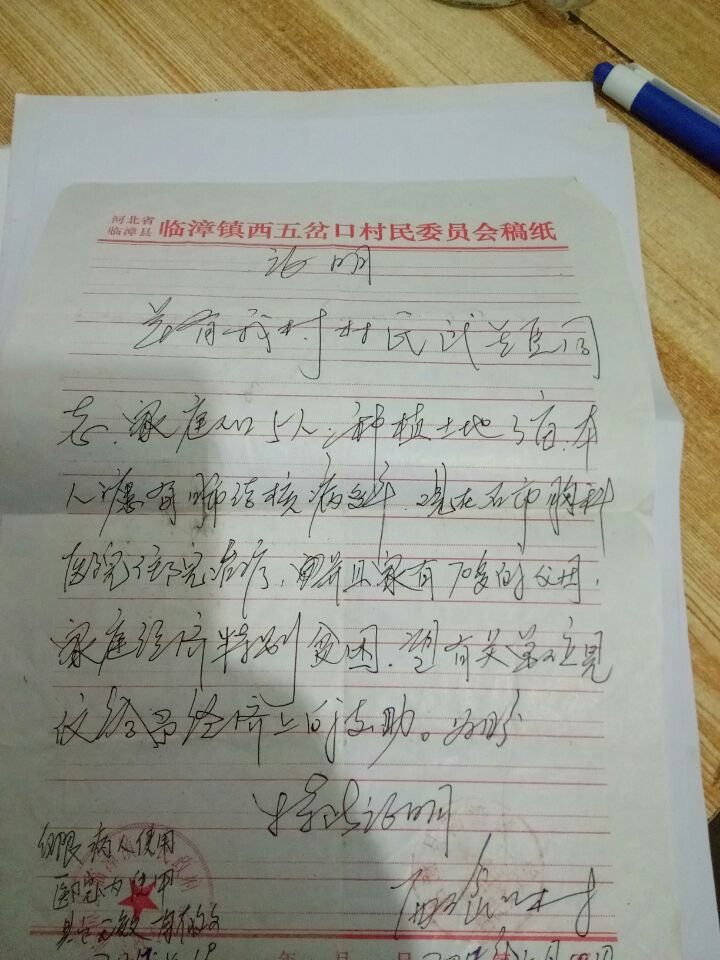 河北省
临漳县 临漳镇西五岔口村民委员会稿纸
证明
兹有我村村民武兰臣同
志,家庭人口5人,种植土地3亩,本
人患有肺结核病多年,现在石市胸科
医院住院治疗,并且家有70多岁的父母,
家庭经济特别贫困,望有关第三意见
给予经济上的支助。为盼
特此证明
仅限病人使用
医院内使用
年 月 日